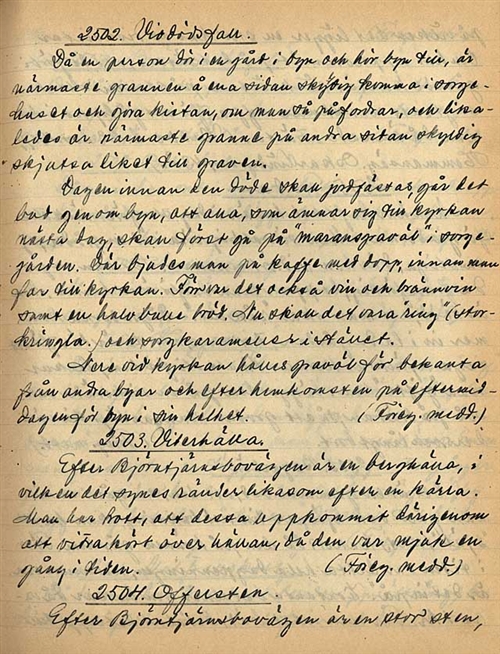 2502. Vid dödsfall.
Då en person dör i en gård i byn och hör byn till, är
närmaste grannen å ena sidan skyldig komma i sorge-
huset och göra kistan, om man så på fordrar, och lika-
ledes är närmaste granne på andra sidan skyldig
skjutsa liket till graven.
Dagen innan den döde skall jordfästas går det
bud genom byn, att alla, som ämnar sig till kyrkan
nästa dag, skall först gå på "maransgravöl" i sorge-
gården. Där bjudes man på kaffe med dopp, innan man
far till kyrkan. Förr var det också vin och brännvin
samt en halv bulle bröd. Nu skall det vara "ring" (stor-
kringla) och sorgkarameller i stället.
Nere vid kyrkan hålles gravöl för bekanta
från andra byar och efter hemkomsten på eftermid-
dagen för byn i sin helhet. (Föreg. medd.)
2503. Viterhälla.
Efter Björntjärnsbovägen är en berghälla, i
vilken det synes ränder likasom efter en kärra.
Man har trott, att dessa uppkommit därigenom
att vitra kört över hällan, då den var mjuk en
gång i tiden. (Föreg. medd.)
2504. Offersten.
Efter Björntjärnsbovägen är en stor sten,